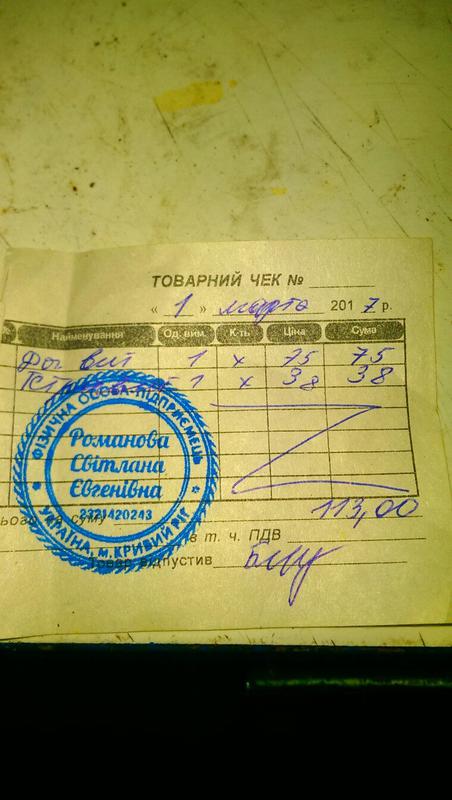 ТОВАРНИЙ ЧЕК №
« 1 » марта 2017 р.
№ Найменування Од. вим. К-ть Ціна Сума
вит 1 х 75 75
1 х 38 38
113,00
суму
в т. ч. ПДВ
Товар відпустив
ФІЗИЧНА ОСОБА-ПІДПРИЄМЕЦЬ
Романова
Світлана
Євгенівна
2321420243
УКРАЇНА, м.КРИВИЙ РІГ